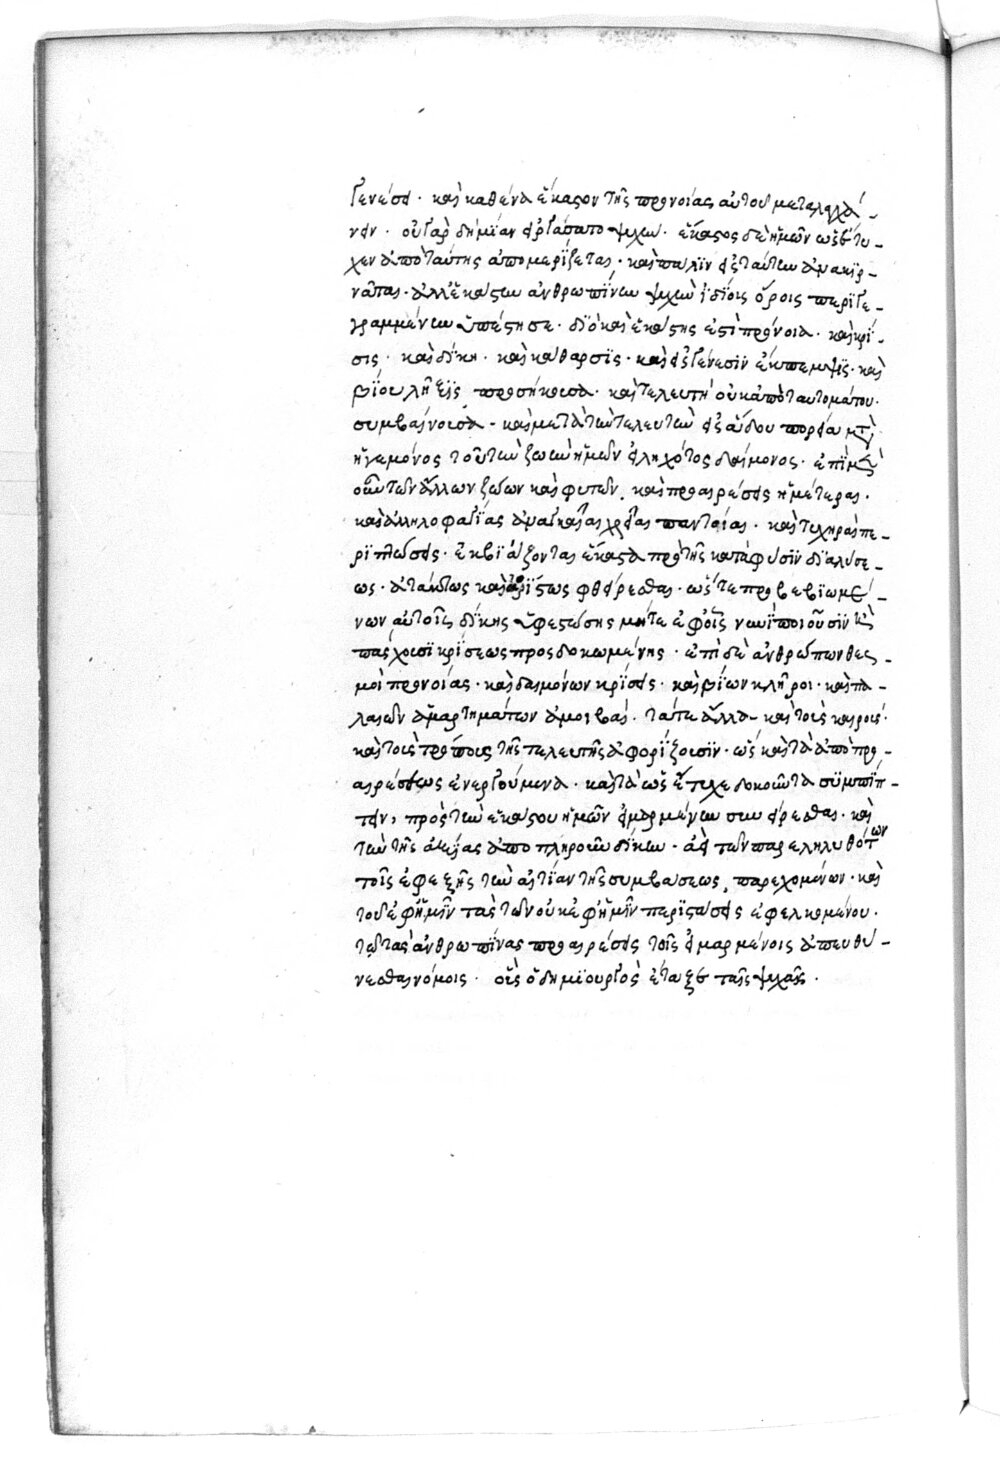 γενέσει· καὶ καθένα ἕκαστον τῆς προνοίας αὐτοῦ μεταλαγχά-
νειν· οὐ γὰρ δὴ μίαν εἰργάσατο ψυχὴν· ἕκαστος δὲ ἡμῶν ὡς ἔτυ-
χεν ἀπὸ ταύτης ἀπομερίζεται· καὶ πάλιν εἰς ταύτην ἀνακίρ-
ναται· ἀλλ' ἑκάστην ἀνθρωπίνην ψυχὴν ἰδίοις ὅροις περιγε-
γραμμένην ὑπέστησε· διὸ καὶ ἑκάστης ἐστὶ πρόνοια· καὶ κρί-
σις· καὶ δίκη· καὶ κάθαρσις· καὶ εἰς γένεσιν ἔκπεμψις· καὶ
βίου λῆξις προσήκουσα· καὶ τελευτὴ οὐκ ἀπὸ ταυτομάτου
συμβαίνουσα· καὶ μετὰ τὴν τελευτὴν εἰς ἅδου πορεία μετὰ
ἡγεμόνος τοῦ τὴν ζωὴν ἡμῶν εἰληχότος δαίμονος· ἐπὶ μὲν
οὖν τῶν ἄλλων ζώων καὶ φυτῶν, καὶ προαιρέσεις ἡμέτεραι·
καὶ ἀλληλοφαγίας ἀναγκαίας χρείας παντοίας· καὶ τυχηραὶ πε-
ριπτώσεις· ἐκβιάζονται ἕκαστα πρὸ τῆς κατὰ φύσιν διαλύσε-
ως· ἀτάκτως καὶ ἀορίστως φθείρεσθαι· ὡς οὔτε προβεβιωμέ-
νων αὐτοῖς δίκης ὑφεστώσης μήτε ἐφ' οἷς νυνὶ ποιοῦσιν ἢ
πάσχουσι κρίσεως προσδοκωμένης· ἐπὶ δὲ ἀνθρώπων θεσ-
μοὶ προνοίας· καὶ δαιμόνων κρίσεις· καὶ βίων κλῆροι· καὶ πα-
λαιῶν ἁμαρτημάτων ἀμοιβαί· τά τε ἄλλα καὶ τοὺς καιροὺς
καὶ τοὺς τρόπους τῆς τελευτῆς ἀφορίζουσιν· ὡς καὶ τὰ ἀπὸ προ-
αιρέσεως ἐνεργούμενα· καὶ τὰ ὡς ἔτυχε δοκοῦντα συμπίπ-
τειν, πρὸς τὴν ἑκάστου ἡμῶν εἱμαρμένην συνείρεσθαι· καὶ
τὴν τῆς ἀξίας ἀποπληροῦν δίκην· ἀεὶ τῶν παρεληλυθότων
τοῖς ἐφεξῆς τὴν αἰτίαν τῆς συμβάσεως παρεχομένων· καὶ
τοῦ ἐφ' ἡμῖν τὰς τῶν οὐκ ἐφ' ἡμῖν παριστάσεις ἐφελκομένου·
τῷ τὰς ἀνθρωπίνας προαιρέσεις τοῖς εἱμαρμένοις ἀπευθύ-
νεσθαι νόμοις· οἷς ὁ δημιουργὸς ἔταξε ταῖς ψυχαῖς·